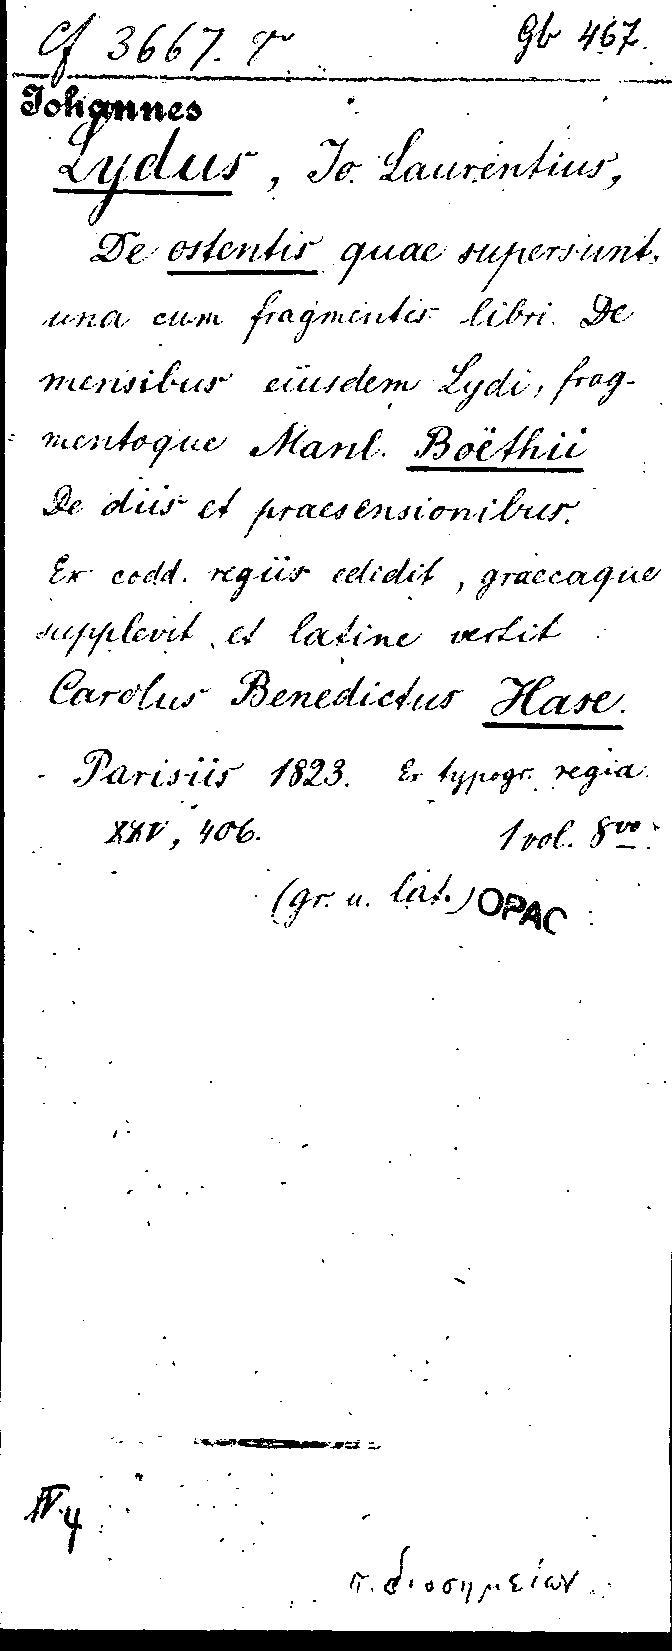 Cf 3667. Gb 467.
Johannes
Lydus, Jo. Laurentius,
De ostentis quae supersunt,
una cum fragmentis libri De
mensibus eiusdem Lydi, frag-
mentoque Manl. Boëthii
De diis et praesensionibus.
Ex codd. regiis edidit, graecaque
supplevit et latine vertit
Carolus Benedictus Hase.
Parisiis 1823. Ex typogr. regia
XXV, 406. 1 vol. 8vo.
(gr. u. lat.) OPAC
IV 4
π. διοσημείων